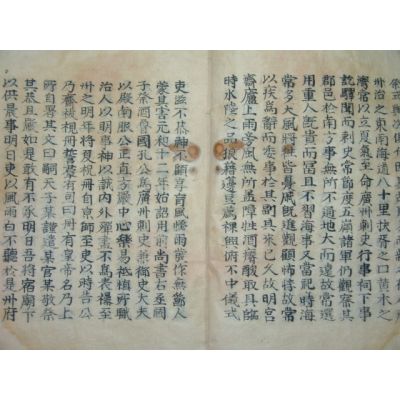 州治之東南海道八十里扶胥之口黃木之
灣常以立夏氣至命廣州刺史行事祠下事
訖驛聞而刺史常節度五嶺諸軍仍觀察其
郡邑於南方事無所不統地大而遠故常選
用重人既貴而富且不習海事又當祀時海
常多大風將往皆憂戚既進觀顧怖悸故常
以疾為解而委事於其副其來已久故明宮
齋廬上雨旁風無所蓋障牲酒瘠酸取具臨
時水陸之品狼籍籩豆薦祼興俯不中儀式
吏滋不恭神不顧享盲風怪雨發作無節人
蒙其害元和十二年始詔用前尚書右丞國
子祭酒魯國孔公為廣州刺史兼御史大夫
以殿南服公正直方嚴中心樂易祗慎所職
治人以明事神以誠內外殫盡不為表襮至
州之明年將夏祝冊自京師至吏以時告公
乃齋祓視冊誓群有司曰冊有皇帝名乃上
所自署其文曰嗣天子某謹遣某官某敬祭
其恭且嚴如是敢有不承明日吾將宿廟下
以供晨事明日吏以風雨白不聽於是州府